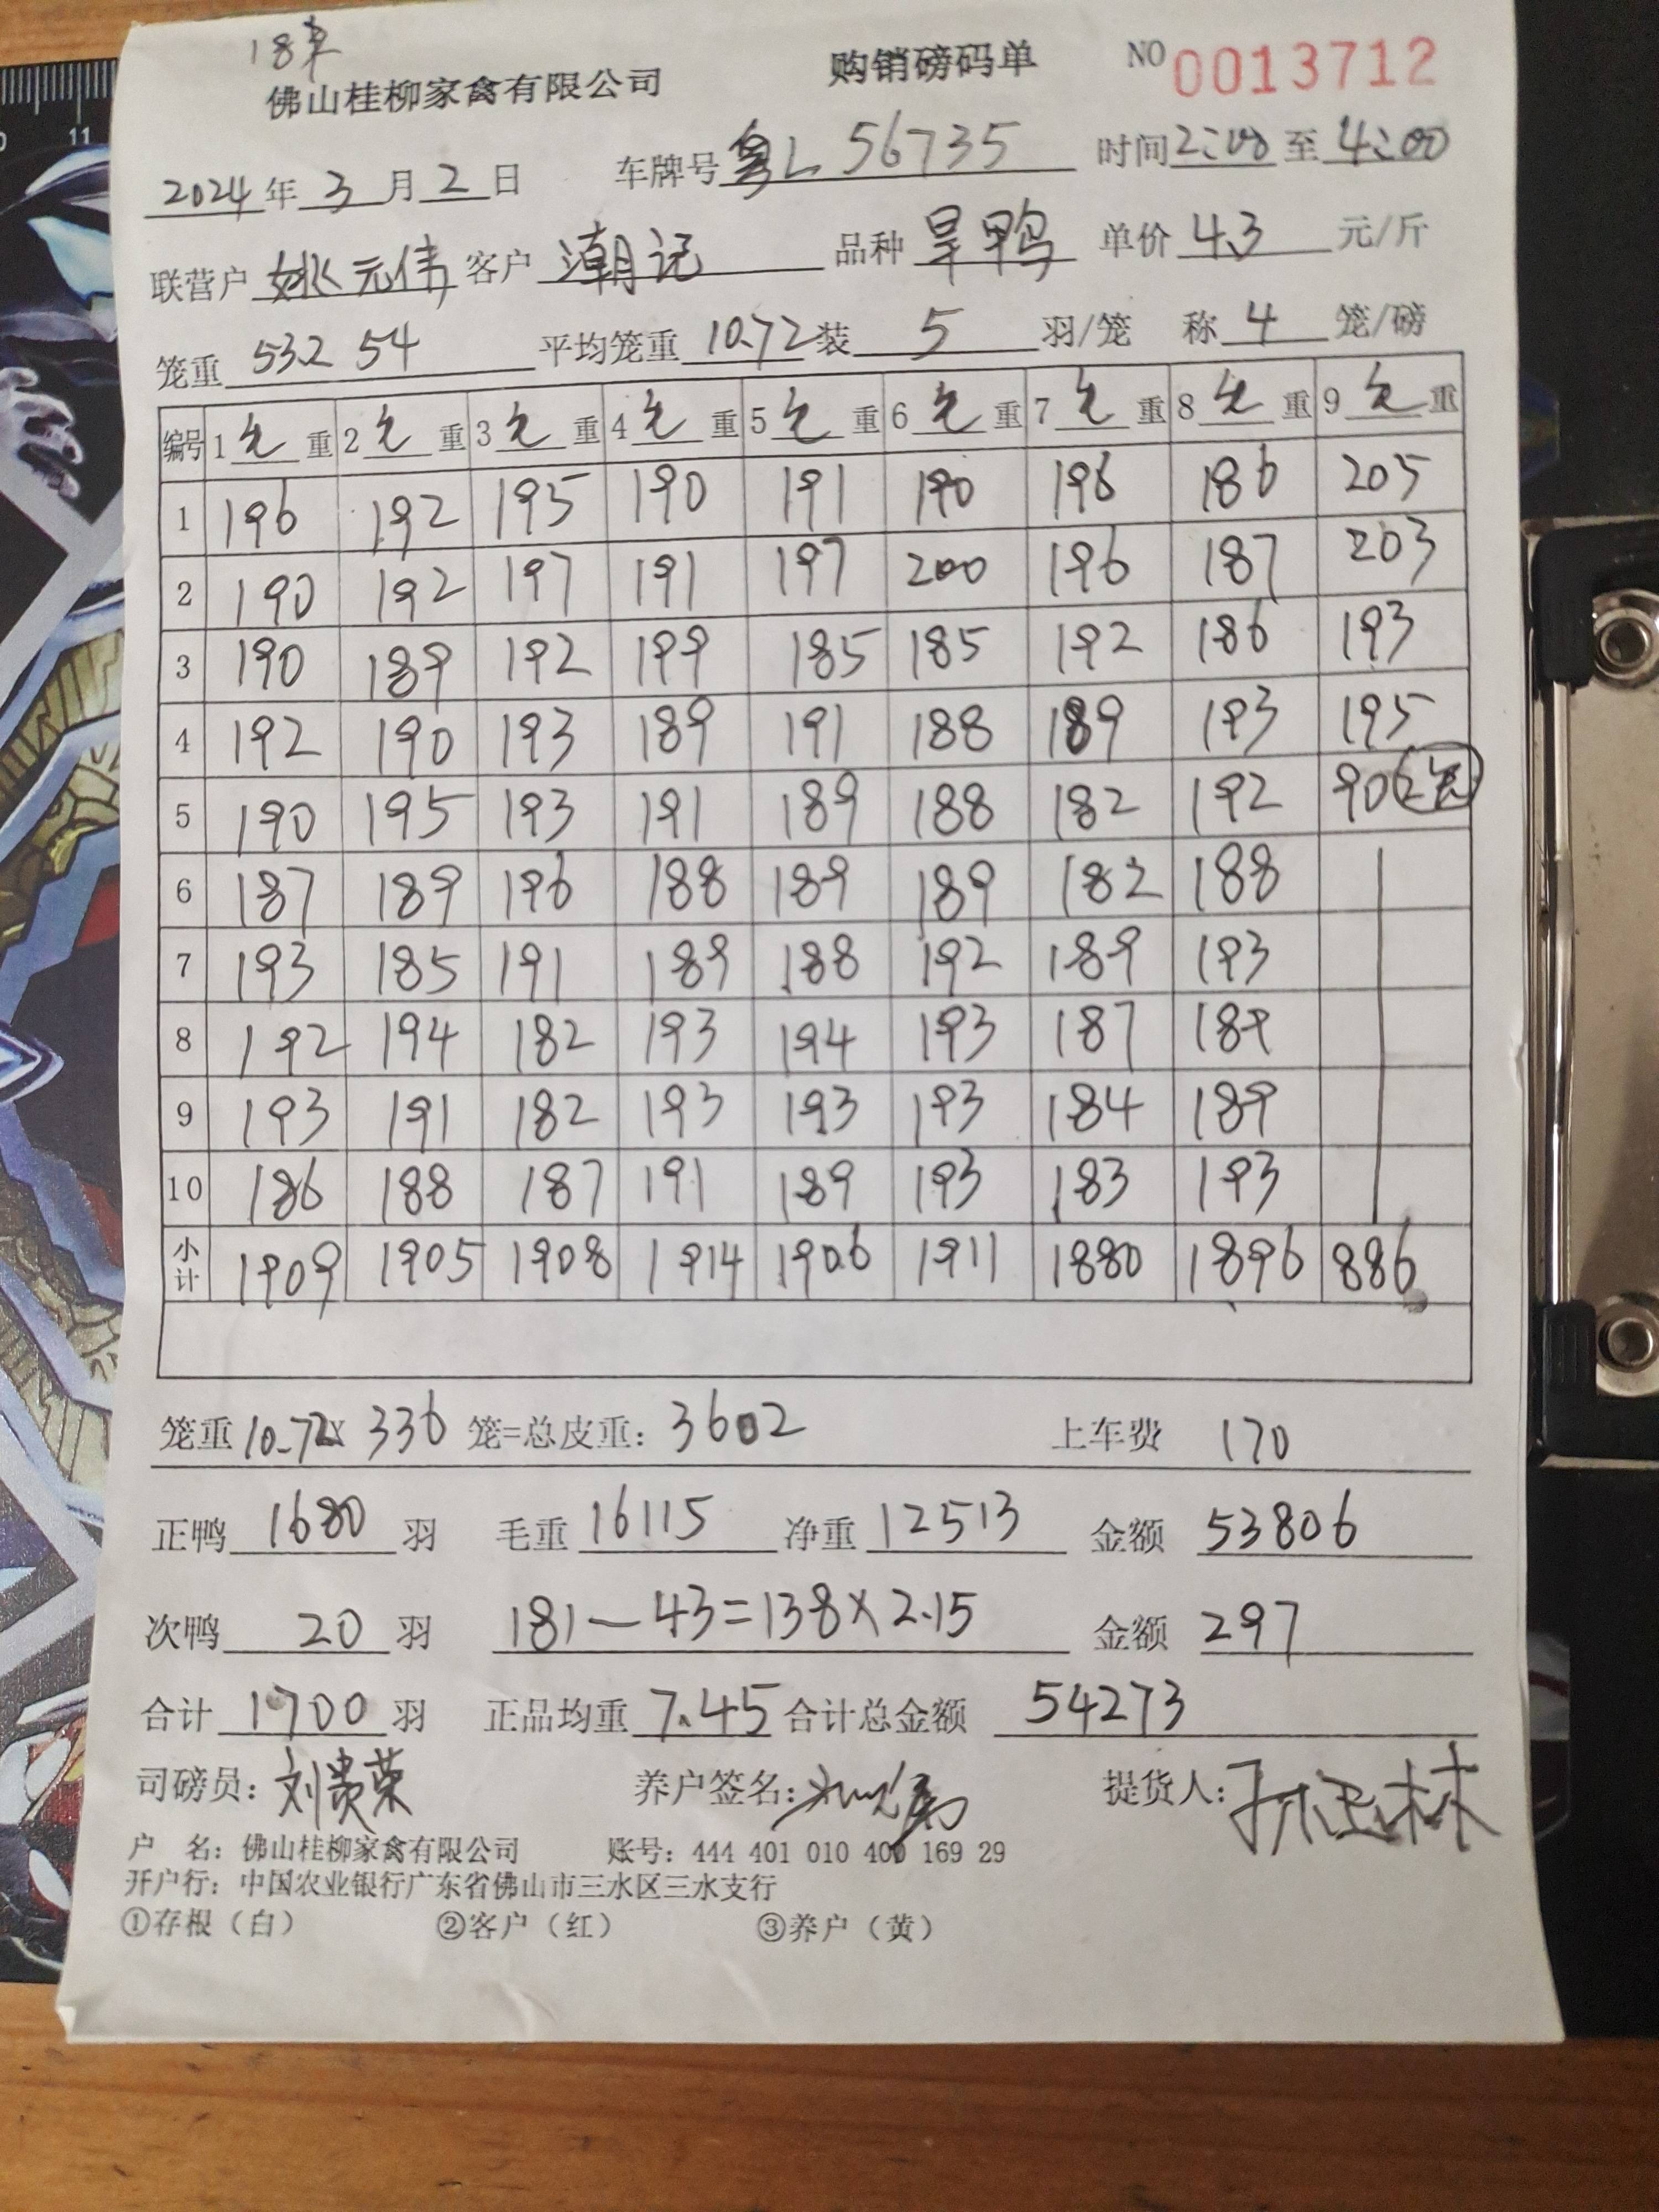 18车
佛山桂柳家禽有限公司 购销磅码单 NO 0013712
2024年3月2日 车牌号粤L 56735 时间2:00至4:00
联营户姚元伟客户潮记 品种旱鸭 单价4.3元/斤
笼重532 54 平均笼重10.72装5羽/笼 称4笼/磅
编号 1毛重 2毛重 3毛重 4毛重 5毛重 6毛重 7毛重 8毛重 9毛重
1 196 192 195 190 191 190 196 186 205
2 190 192 197 191 197 200 196 187 203
3 190 189 192 199 185 185 192 186 193
4 192 190 193 189 191 188 189 193 195
5 190 195 193 191 189 188 182 192 90 2笼
6 187 189 196 188 189 189 182 188
7 193 185 191 189 188 192 189 193
8 192 194 182 193 194 193 187 189
9 193 191 182 193 193 193 184 189
10 186 188 187 191 189 193 183 193
小计 1909 1905 1908 1914 1906 1911 1880 1896 886
笼重10.72X 336 笼=总皮重：3602 上车费 170
正鸭1680羽 毛重16115 净重12513 金额53806
次鸭20羽 181-43=138X2.15 金额297
合计1700羽 正品均重7.45合计总金额54273
司磅员：刘贵荣 养户签名： 提货人：
户 名：佛山桂柳家禽有限公司 账号：444 401 010 400 169 29
开户行：中国农业银行广东省佛山市三水区三水支行
①存根（白） ②客户（红） ③养户（黄）
11